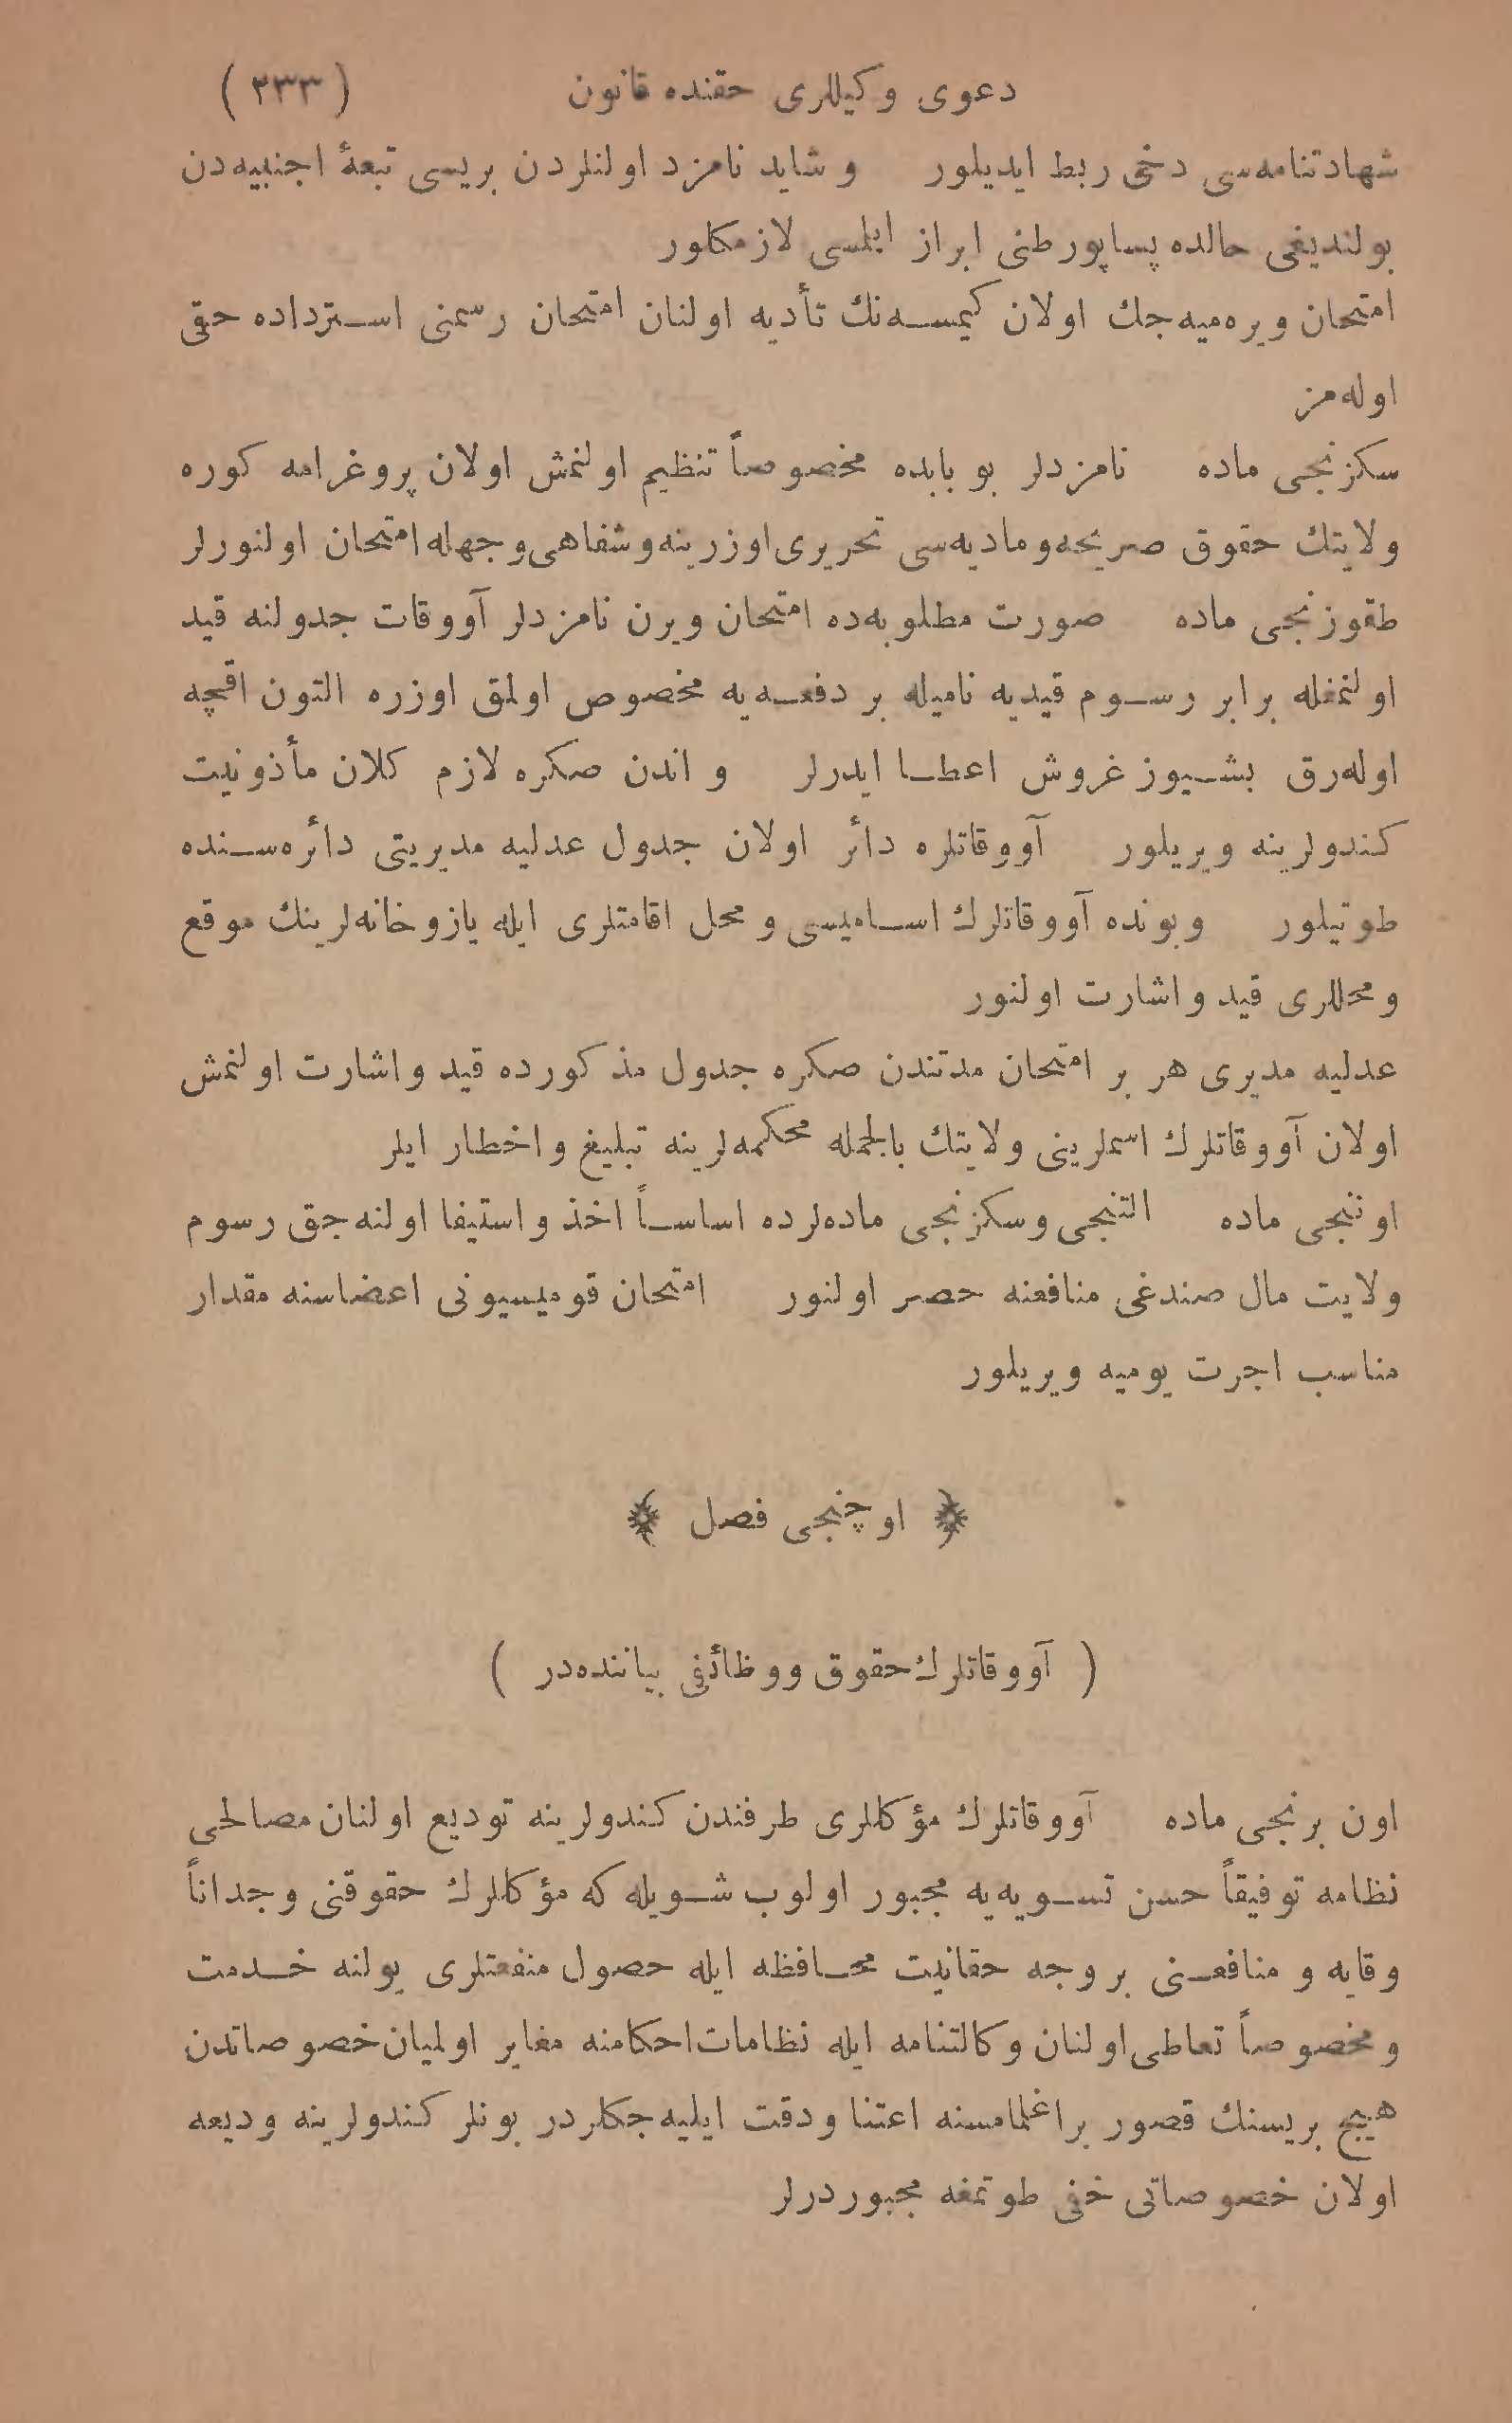 دعوی وکیللری حقنده قانون (٢٣٣)
شهادتنامه‌سی دخی ربط ایدیلور وشاید نامزد اولنلردن بریسی تبعهٔ اجنبیه‌دن
بولندیغی حالده پساپورطنی ابراز ایلمسی لازمكلور
امتحان ویره‌میه‌جك اولان کیمسه‌نك تأدیه اولنان امتحان رسمنی استرداده حقی
اوله‌مز
سکزنجی ماده نامزدلر بو بابده مخصوصاً تنظیم اولنمش اولان پروغرامه کوره
ولایتك حقوق صریحه‌ومادیه‌سی تحریری‌اوزرینه‌وشفاهی‌وجهله‌امتحان اولنورلر
طقوزنجی ماده صورت مطلوبه‌ده امتحان ویرن نامزدلر آووقات جدولنه قید
اولنمغله برابر رسوم قیدیه نامیله بر دفعه‌یه مخصوص اولمق اوزره التون اقچه
اوله‌رق بشیوز غروش اعطا ایدرلر و اندن صکره لازم کلان مأذونیت
کندولرینه ویریلور آووقاتلره دائر اولان جدول عدلیه مدیریتی دائره‌سنده
طوتیلور وبونده آووقاتلرك اسامیسی و محل اقامتلری ایله یازوخانه‌لرینك موقع
ومحللری قید واشارت اولنور
عدلیه مدیری هر بر امتحان مدتندن صکره جدول مذکورده قید واشارت اولنمش
اولان آووقاتلرك اسملرینی ولایتك بالجمله محکمه‌لرینه تبلیغ واخطار ایلر
اوننجی ماده التنجی وسکزنجی ماده‌لرده اساساً اخذ واستیفا اولنه‌جق رسوم
ولایت مال صندغی منافعنه حصر اولنور امتحان قومیسیونی اعضاسنه مقدار
مناسب اجرت یومیه ویریلور
﴿ اوچنجی فصل ﴾
( آووقاتلرك حقوق ووظائفی بیاننده‌در )
اون برنجی ماده آووقاتلرك مؤکللری طرفندن کندولرینه تودیع اولنان مصالحی
نظامه توفیقاً حسن تسویه‌یه مجبور اولوب شویله که مؤکللرك حقوقنی وجداناً
وقایه و منافعنی بروجه حقانیت محافظه ایله حصول منفعتلری یولنه خدمت
ومخصوصاً تعاطی‌اولنان وکالتنامه ایله نظامات‌احکامنه مغایر اولمیان خصوصاتدن
هیچ بریسنك قصور براغلمامسنه اعتنا ودقت ایلیه‌جکلردر بونلر کندولرینه ودیعه
اولان خصوصاتی خفی طوتمغه مجبوردرلر